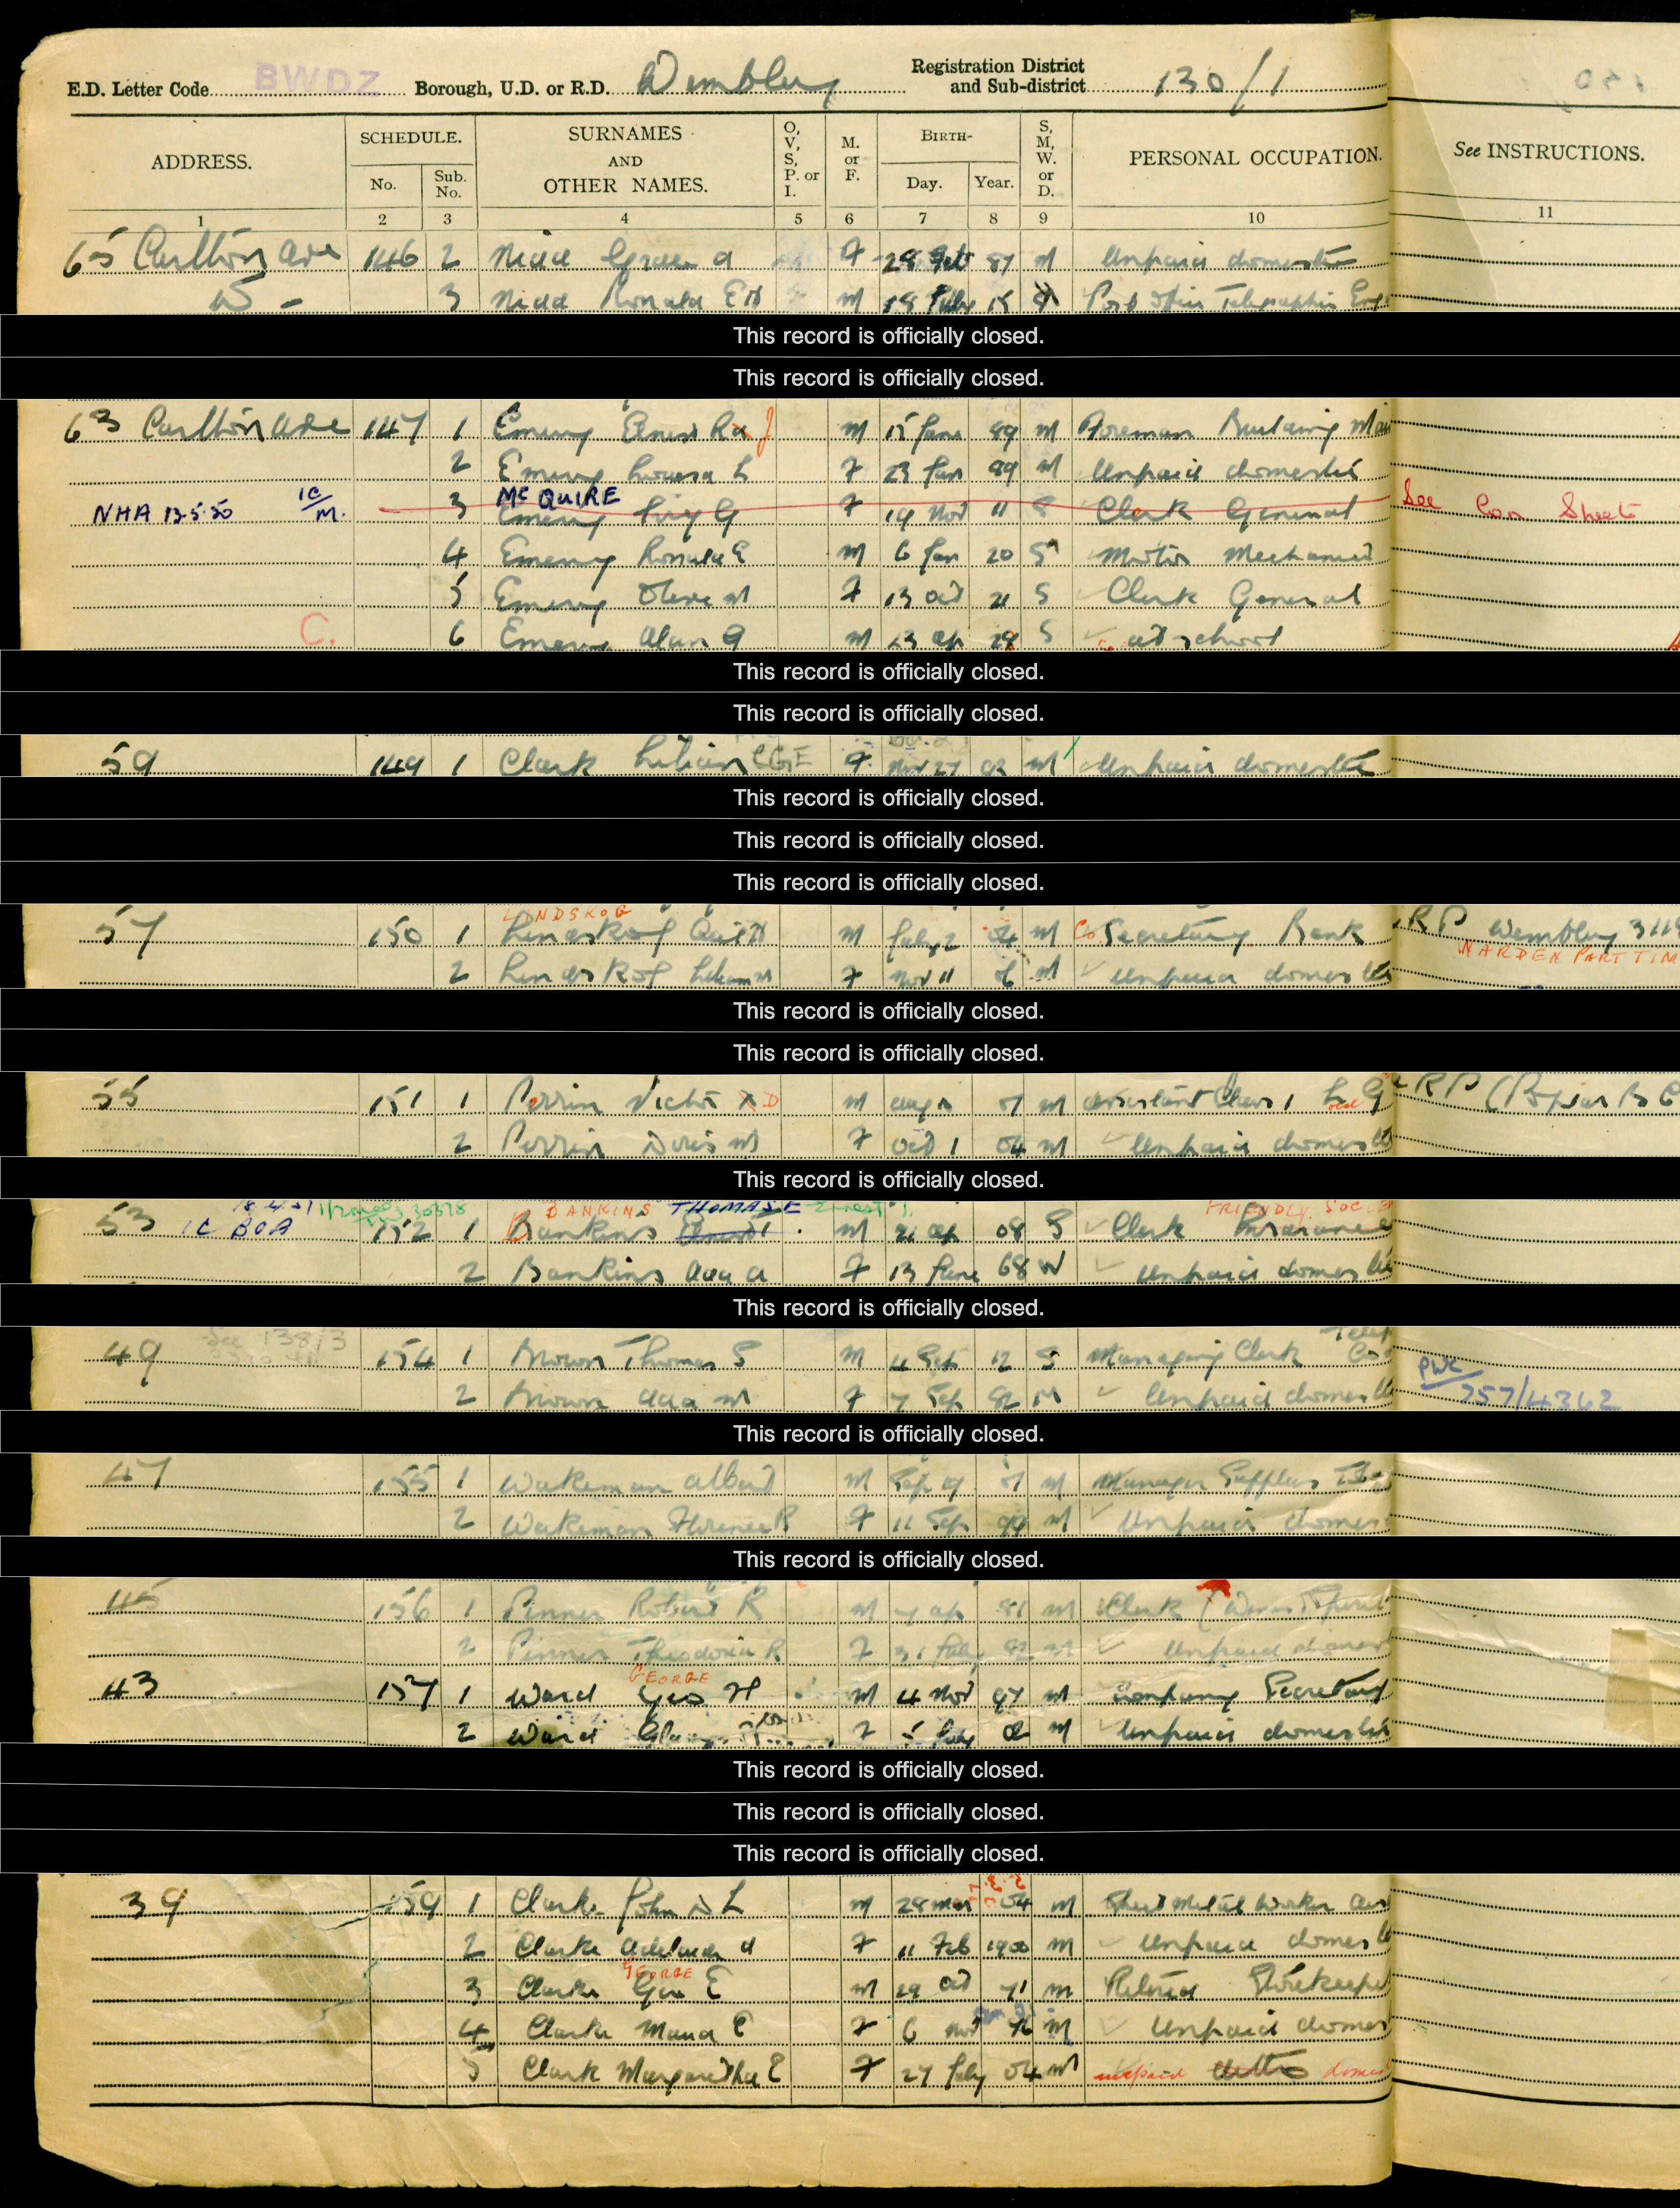 E.D. Letter Code BWDZ Borough, U.D. or R.D. Wembley Registration District and Sub-district 130/1
ADDRESS. SCHEDULE. No. Sub. No. SURNAMES AND OTHER NAMES. O, V, S, P. or I. M. or F. BIRTH- Day. Year. S, M, W. or D. PERSONAL OCCUPATION. See INSTRUCTIONS.
1 2 3 4 5 6 7 8 9 10 11
65 Carlton Ave 146 2 Nidd Grace A F 28 Feb 87 M Unpaid domestic
3 Nidd Ronald E M 18 July 15 Post Office Telegraphic Eng
This record is officially closed.
This record is officially closed.
63 Carlton Ave 147 1 Emery Ernest R J M 15 June 89 M Foreman Building
2 Emery Louisa L F 23 Jan 89 M Unpaid domestic
NHA 13.5.50 IC/M. 3 McQUIRE Emery Ivy G F 19 Nov 11 S Clerk General See Con Sheet
4 Emery Ronald E M 6 Jan 20 S Motor Mechanic
5 Emery Olive M F 13 Oct 21 S Clerk General
C. 6 Emery Alan G M 23 Ap 28 S at school
This record is officially closed.
This record is officially closed.
59 149 1 Clark Lilian C.G.E F Nov 27 92 M Unpaid domestic
This record is officially closed.
This record is officially closed.
This record is officially closed.
LINDSKOG
57 150 1 Lindskog M July 2 04 M Co. Secretary Bank ARP Wembley 3119
WARDEN PART TIM
2 Lindskog Lilian M F Nov 11 6 M Unpaid domestic
This record is officially closed.
This record is officially closed.
55 151 1 Perrin Victor D M Aug 07 M Assistant Class 1 L G ARP (Poplar B C
2 Perrin Doris M F Oct 1 04 M Unpaid domestic
This record is officially closed.
BANKINS THOMAS E Ernest T. FRIENDLY SOCIE
53 IC BOA 152 1 Bankins M 21 Ap 08 S Clerk Insurance
2 Bankins Ada A F 13 June 68 W Unpaid domestic
This record is officially closed.
See 138/3
49 154 1 Brown Thomas S M 4 Sep 12 S Managing Clerk
2 Brown Ada M F 7 Sep 82 M Unpaid domestic PWC 257/4362
This record is officially closed.
47 155 1 Wakeman Albert M Sep 19 07 M Manager Supplies
2 Wakeman Florence R F 11 Sep 99 M Unpaid domes
This record is officially closed.
45 156 1 Pinner Robert R M 7 Ap 81 M Clerk
2 Pinner Theodoria R F 31 July 82 M Unpaid domes
GEORGE
43 157 1 Ward Geo H M 4 Nov 97 M Company Secretary
2 Ward F 5 July 02 M Unpaid domestic
This record is officially closed.
This record is officially closed.
This record is officially closed.
39 159 1 Clarke John D L M 28 Mar 04 M Sheet Metal Worker
2 Clarke Adelaide A F 11 Feb 1900 M Unpaid domes
GEORGE
3 Clarke Geo E M 29 Oct 71 M Retired Storekeeper
4 Clarke Maud E F 6 Nov 76 M Unpaid domes
5 Clark Margaretha E F 27 July 04 M unpaid ditto domes